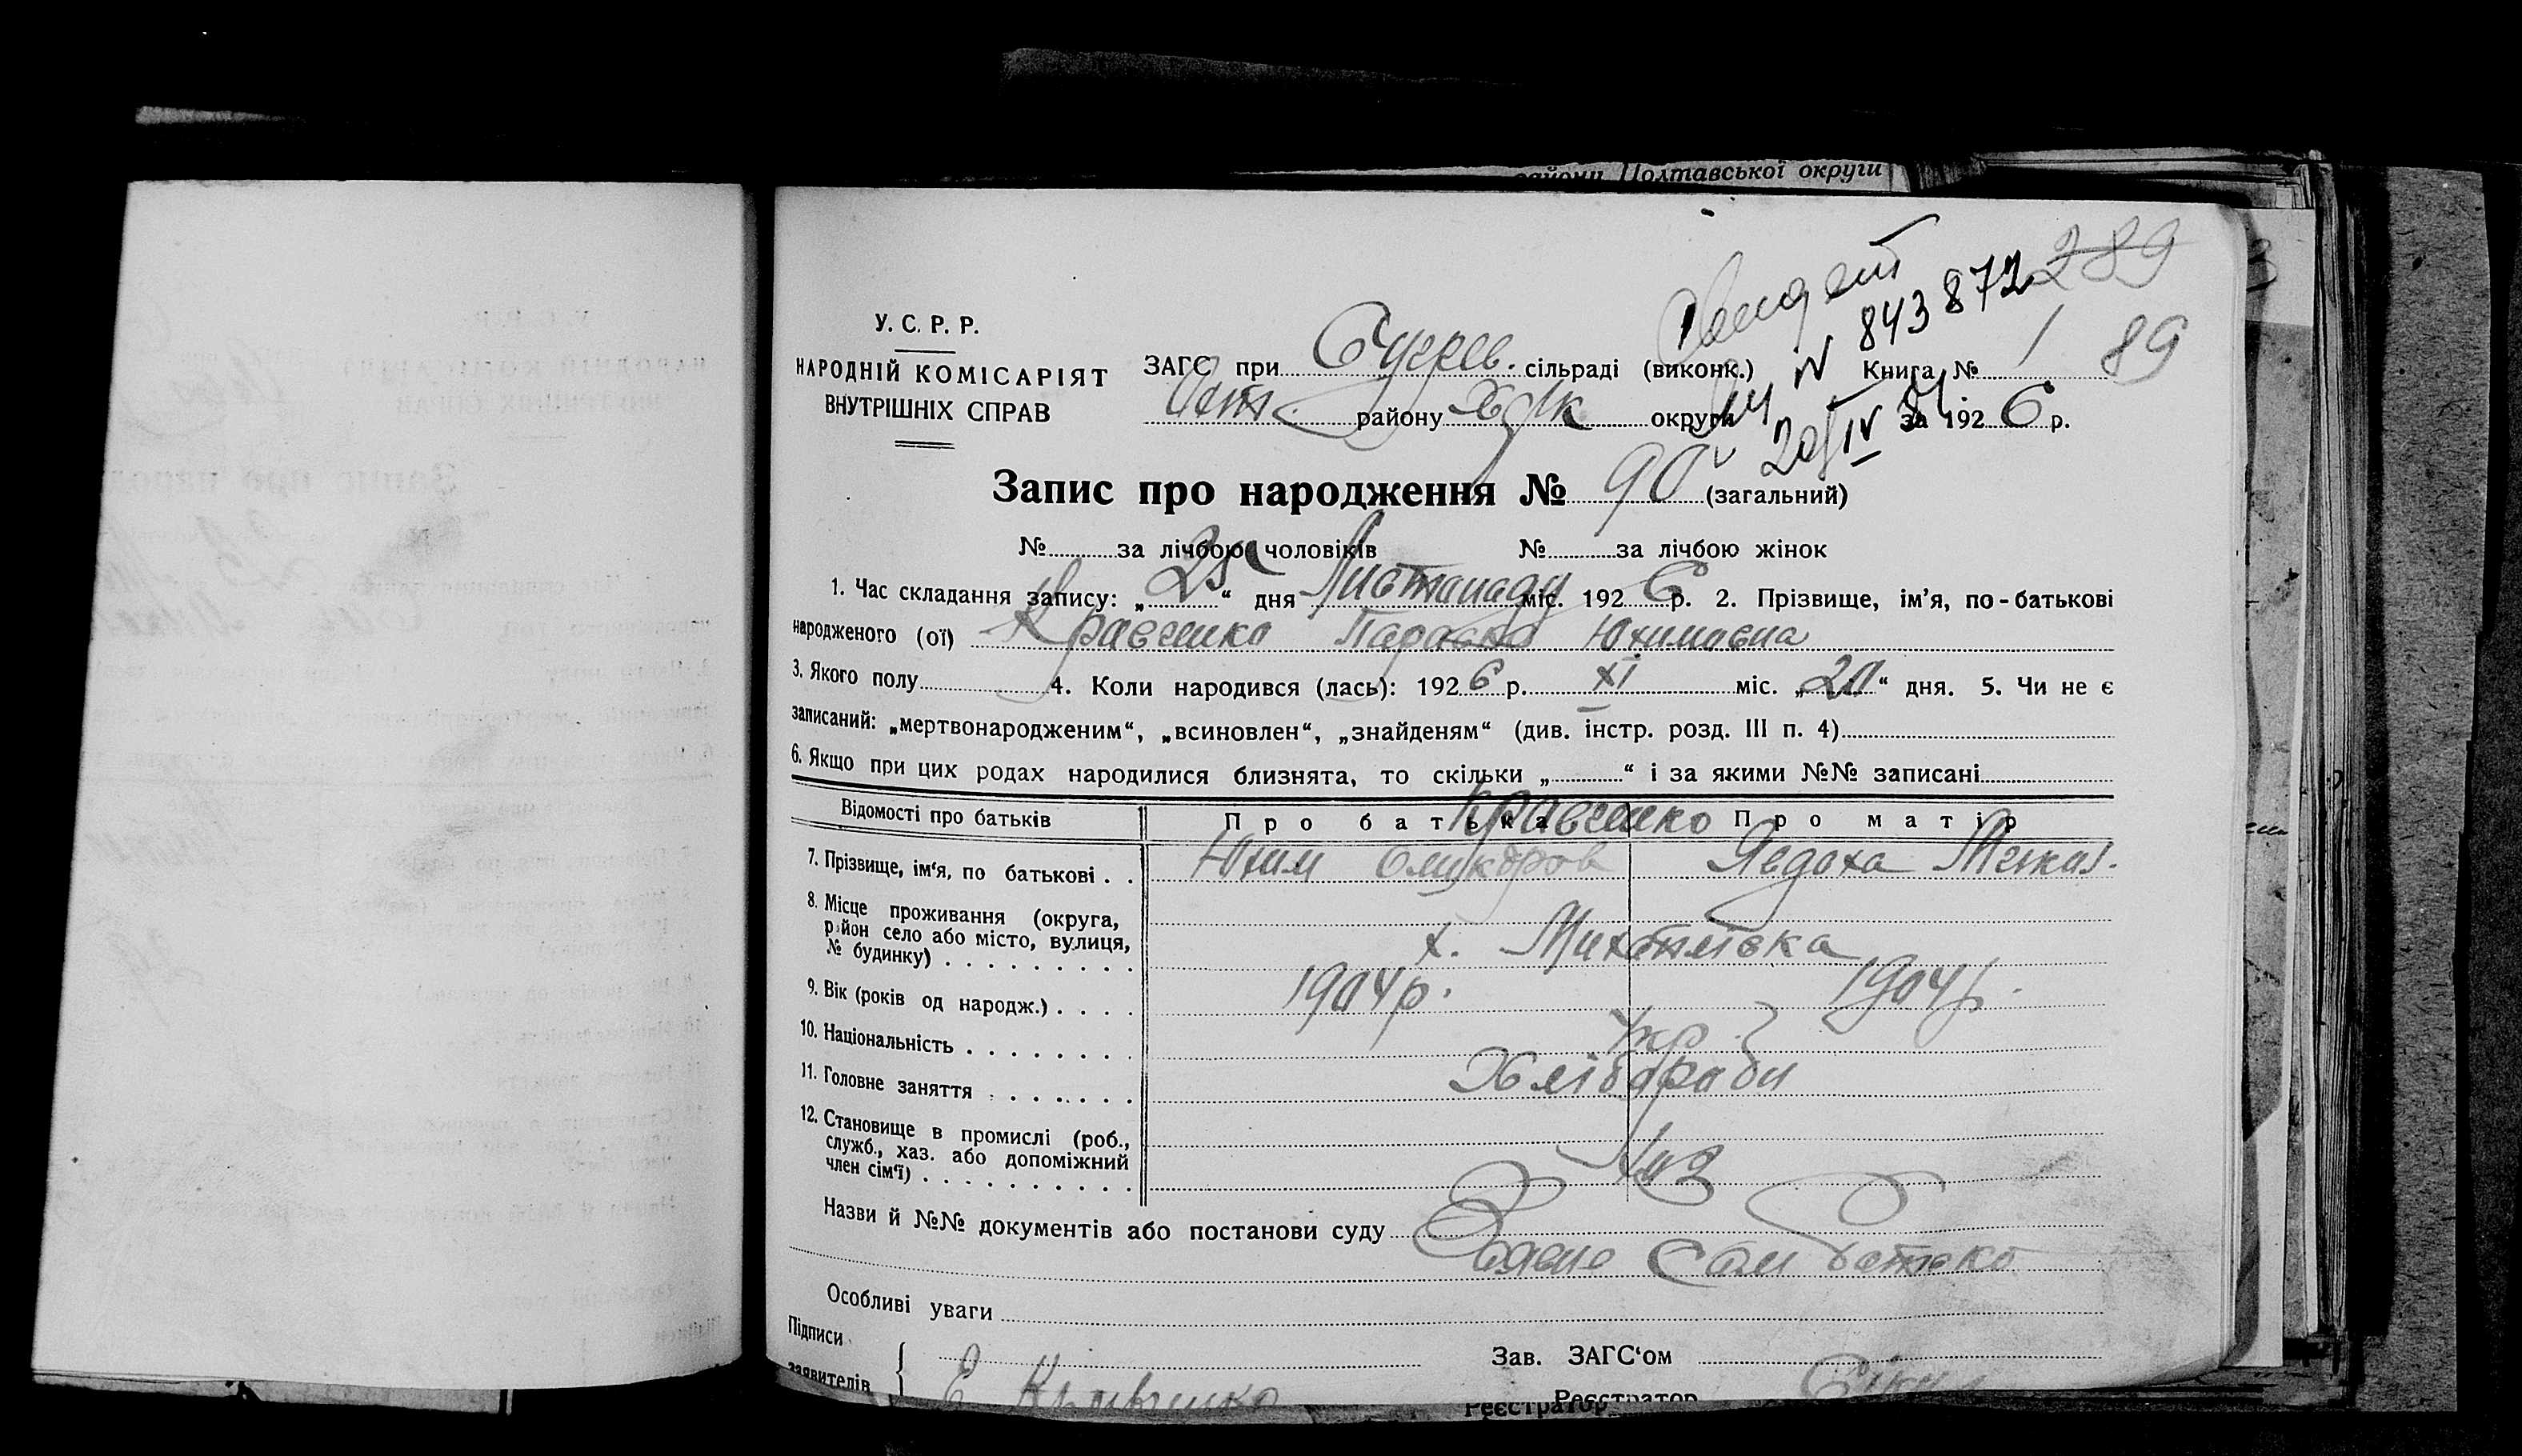 райони Полтавської округи
289
Свидет
№ 843872
89
У. С. Р. Р.
НАРОДНІЙ КОМІСАРІЯТ
ВНУТРІШНІХ СПРАВ
ЗАГС при сільраді (виконк.) Книга № 1
району округи за 1926 р.
20/IV
Запис про народження № 90 (загальний)
№ за лічбою чоловіків № за лічбою жінок
1. Час складання запису: „25“ дня Листопаду міс. 1926 р. 2. Прізвище, ім’я, по-батькові
народженого (ої) Кравченко Параска Юхимовна
3. Якого полу 4. Коли народився (лась): 1926 р. XI міс. „20“ дня. 5. Чи не є
записаний: „мертвонародженим“, „всиновлен“, „знайденям“ (див. інстр. розд. III п. 4)
6. Якщо при цих родах народилися близнята, то скільки „ “ і за якими №№ записані
Відомості про батьків Про батька Про матір
Кравченко
7. Прізвище, ім‘я, по батькові . . Юхим Явдоха
8. Місце проживання (округа,
район село або місто, вулиця,
№ будинку) . . . . . . . . . . х. Михайлівка
9. Вік (років од народж.) . . . . 1904р. 1904р.
10. Національність . . . . . . . . Укр
11. Головне заняття . . . . . . . Хлібороби
12. Становище в промислі (роб.,
служб., хаз. або допоміжний
член сім‘ї) . . . . . . . . . . Хаз
Назви й №№ документів або постанови суду
Заяви Сам батько
Особливі уваги
Підписи
заявителів Є Кравченко
Зав. ЗАГС‘ом
Реєстратор
Реєстратор